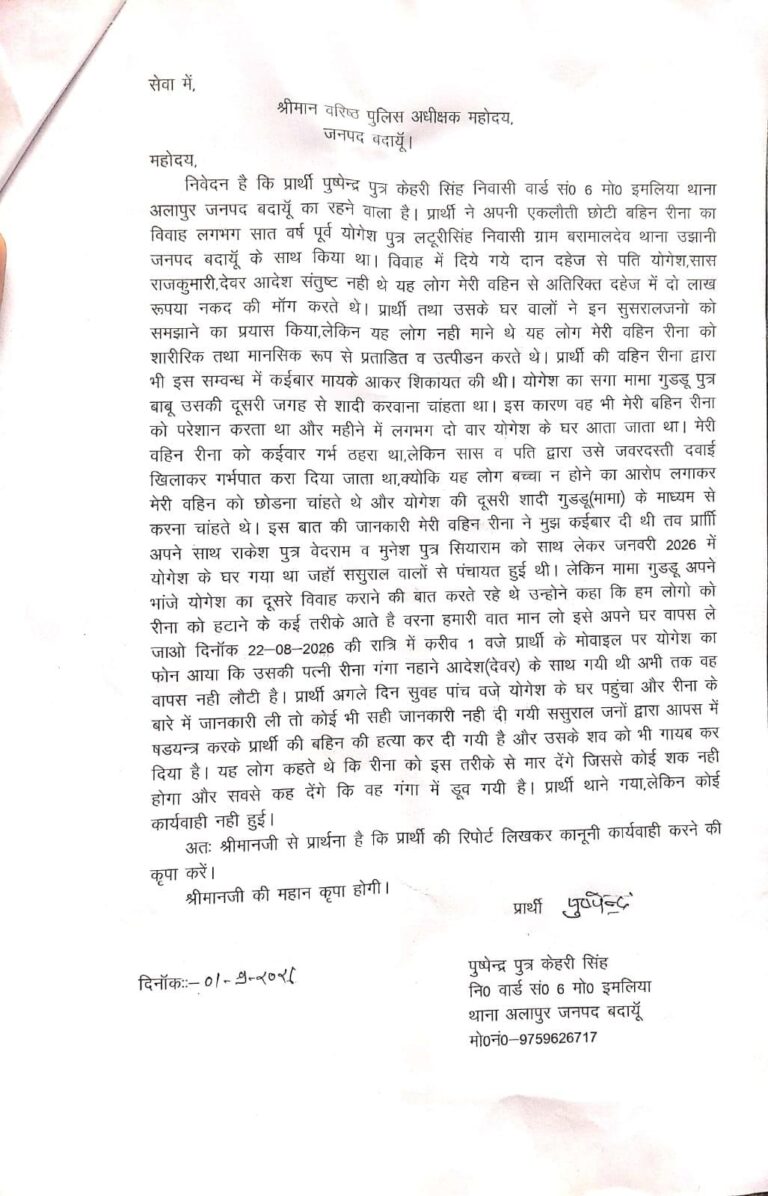 सेवा में,
श्रीमान वरिष्ठ पुलिस अधीक्षक महोदय,
जनपद बदायूॅ।
महोदय,
निवेदन है कि प्रार्थी पुष्पेन्द्र पुत्र केहरी सिंह निवासी वार्ड सं0 6 मो0 इमलिया थाना
अलापुर जनपद बदायूॅ का रहने वाला है। प्रार्थी ने अपनी एकलौती छोटी बहिन रीना का
विवाह लगभग सात वर्ष पूर्व योगेश पुत्र लटूरीसिंह निवासी ग्राम बरामालदेव थाना उझानी
जनपद बदायूॅ के साथ किया था। विवाह में दिये गये दान दहेज से पति योगेश,सास
राजकुमारी,देवर आदेश संतुष्ट नही थे यह लोग मेरी वहिन से अतिरिक्त दहेज में दो लाख
रूपया नकद की मॉग करते थे। प्रार्थी तथा उसके घर वालों ने इन सुसरालजनो को
समझाने का प्रयास किया,लेकिन यह लोग नही माने थे यह लोग मेरी वहिन रीना को
शारीरिक तथा मानसिक रूप से प्रताडित व उत्पीडन करते थे। प्रार्थी की वहिन रीना द्वारा
भी इस सम्वन्ध में कईबार मायके आकर शिकायत की थी। योगेश का सगा मामा गुडडू पुत्र
बाबू उसकी दूसरी जगह से शादी करवाना चांहता था। इस कारण वह भी मेरी बहिन रीना
को परेशान करता था और महीने में लगभग दो वार योगेश के घर आता जाता था। मेरी
वहिन रीना को कईवार गर्भ ठहरा था,लेकिन सास व पति द्वारा उसे जवरदस्ती दवाई
खिलाकर गर्भपात करा दिया जाता था,क्योकि यह लोग बच्चा न होने का आरोप लगाकर
मेरी वहिन को छोडना चांहते थे और योगेश की दूसरी शादी गुडडू(मामा) के माध्यम से
करना चांहते थे। इस बात की जानकारी मेरी वहिन रीना ने मुझ कईबार दी थी तव प्रार्थी
अपने साथ राकेश पुत्र वेदराम व मुनेश पुत्र सियाराम को साथ लेकर जनवरी 2026 में
योगेश के घर गया था जहॉ ससुराल वालों से पंचायत हुई थी। लेकिन मामा गुडडू अपने
भांजे योगेश का दूसरे विवाह कराने की बात करते रहे थे उन्होने कहा कि हम लोगो को
रीना को हटाने के कई तरीके आते है वरना हमारी वात मान लो इसे अपने घर वापस ले
जाओ दिनॉक 22-08-2026 की रात्रि में करीव 1 वजे प्रार्थी के मोवाइल पर योगेश का
फोन आया कि उसकी पत्नी रीना गंगा नहाने आदेश(देवर) के साथ गयी थी अभी तक वह
वापस नही लौटी है। प्रार्थी अगले दिन सुवह पांच वजे योगेश के घर पहुंचा और रीना के
बारे में जानकारी ली तो कोई भी सही जानकारी नही दी गयी ससुराल जनों द्वारा आपस में
षडयन्त्र करके प्रार्थी की बहिन की हत्या कर दी गयी है और उसके शव को भी गायब कर
दिया है। यह लोग कहते थे कि रीना को इस तरीके से मार देंगे जिससे कोई शक नही
होगा और सवसे कह देंगे कि वह गंगा में डूव गयी है। प्रार्थी थाने गया,लेकिन कोई
कार्यवाही नही हुई।
अतः श्रीमानजी से प्रार्थना है कि प्रार्थी की रिपोर्ट लिखकर कानूनी कार्यवाही करने की
कृपा करें।
श्रीमानजी की महान कृपा होगी।
प्रार्थी पुष्पेन्द्र
पुष्पेन्द्र पुत्र केहरी सिंह
नि0 वार्ड सं0 6 मो0 इमलिया
थाना अलापुर जनपद बदायूॅ
मो0नं0-9759626717
दिनॉकः-01-9-२०२६